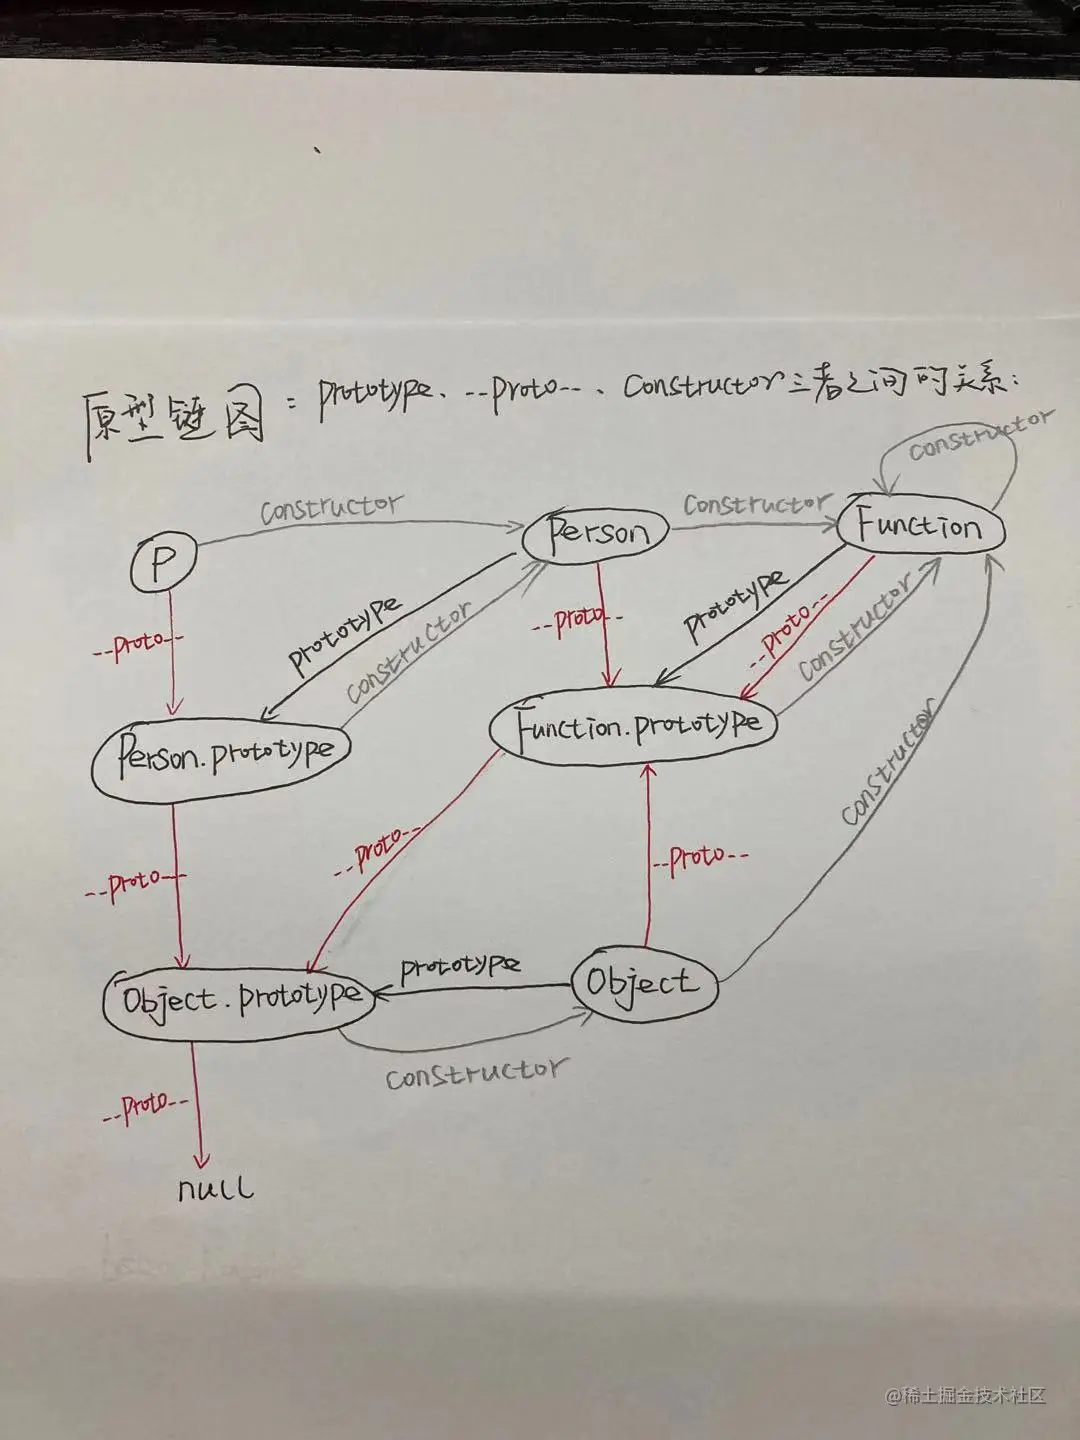 原型链图：prototype、--proto--、Constructor三者之间的关系：
constructor
constructor
constructor
P
Person
Function
--proto--
prototype
constructor
--proto--
prototype
--proto--
constructor
Person.prototype
Function.prototype
constructor
--proto--
--proto--
--proto--
Object.prototype
prototype
Object
constructor
--proto--
null
@稀土掘金技术社区